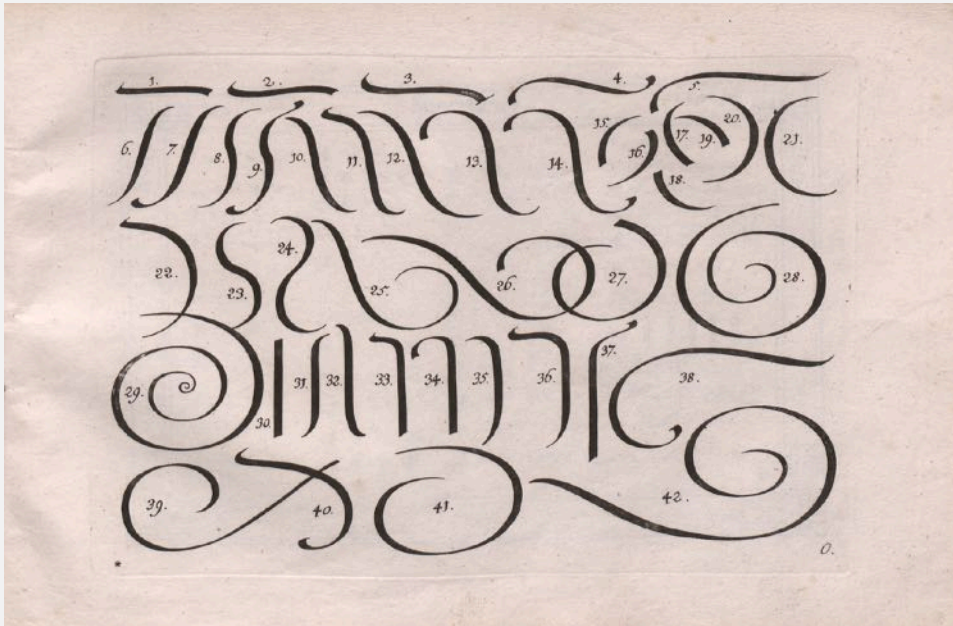 1. 2. 3. 4. 5.
6. 7. 8. 9. 10. 11. 12. 13. 14. 15. 16. 17. 18. 19. 20. 21.
22. 23. 24. 25. 26. 27. 28.
29. 30. 31. 32. 33. 34. 35. 36. 37. 38.
39. 40. 41. 42.
O.
*